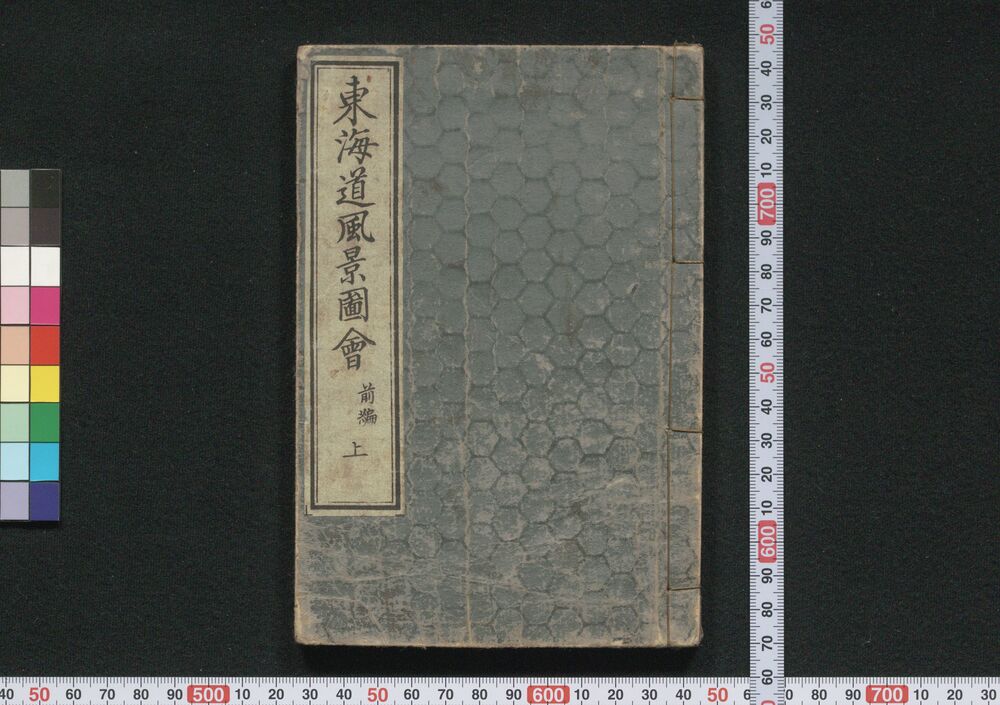 東海道風景圖會
前編
上
6 50 40 30 20 10 700 90 80 70 60 50 40 30 20 10 600 90 80 70 60
40 50 60 70 80 90 500 10 20 30 40 50 60 70 80 90 600 10 20 30 40 50 6 0 80 90 700 10 20 30